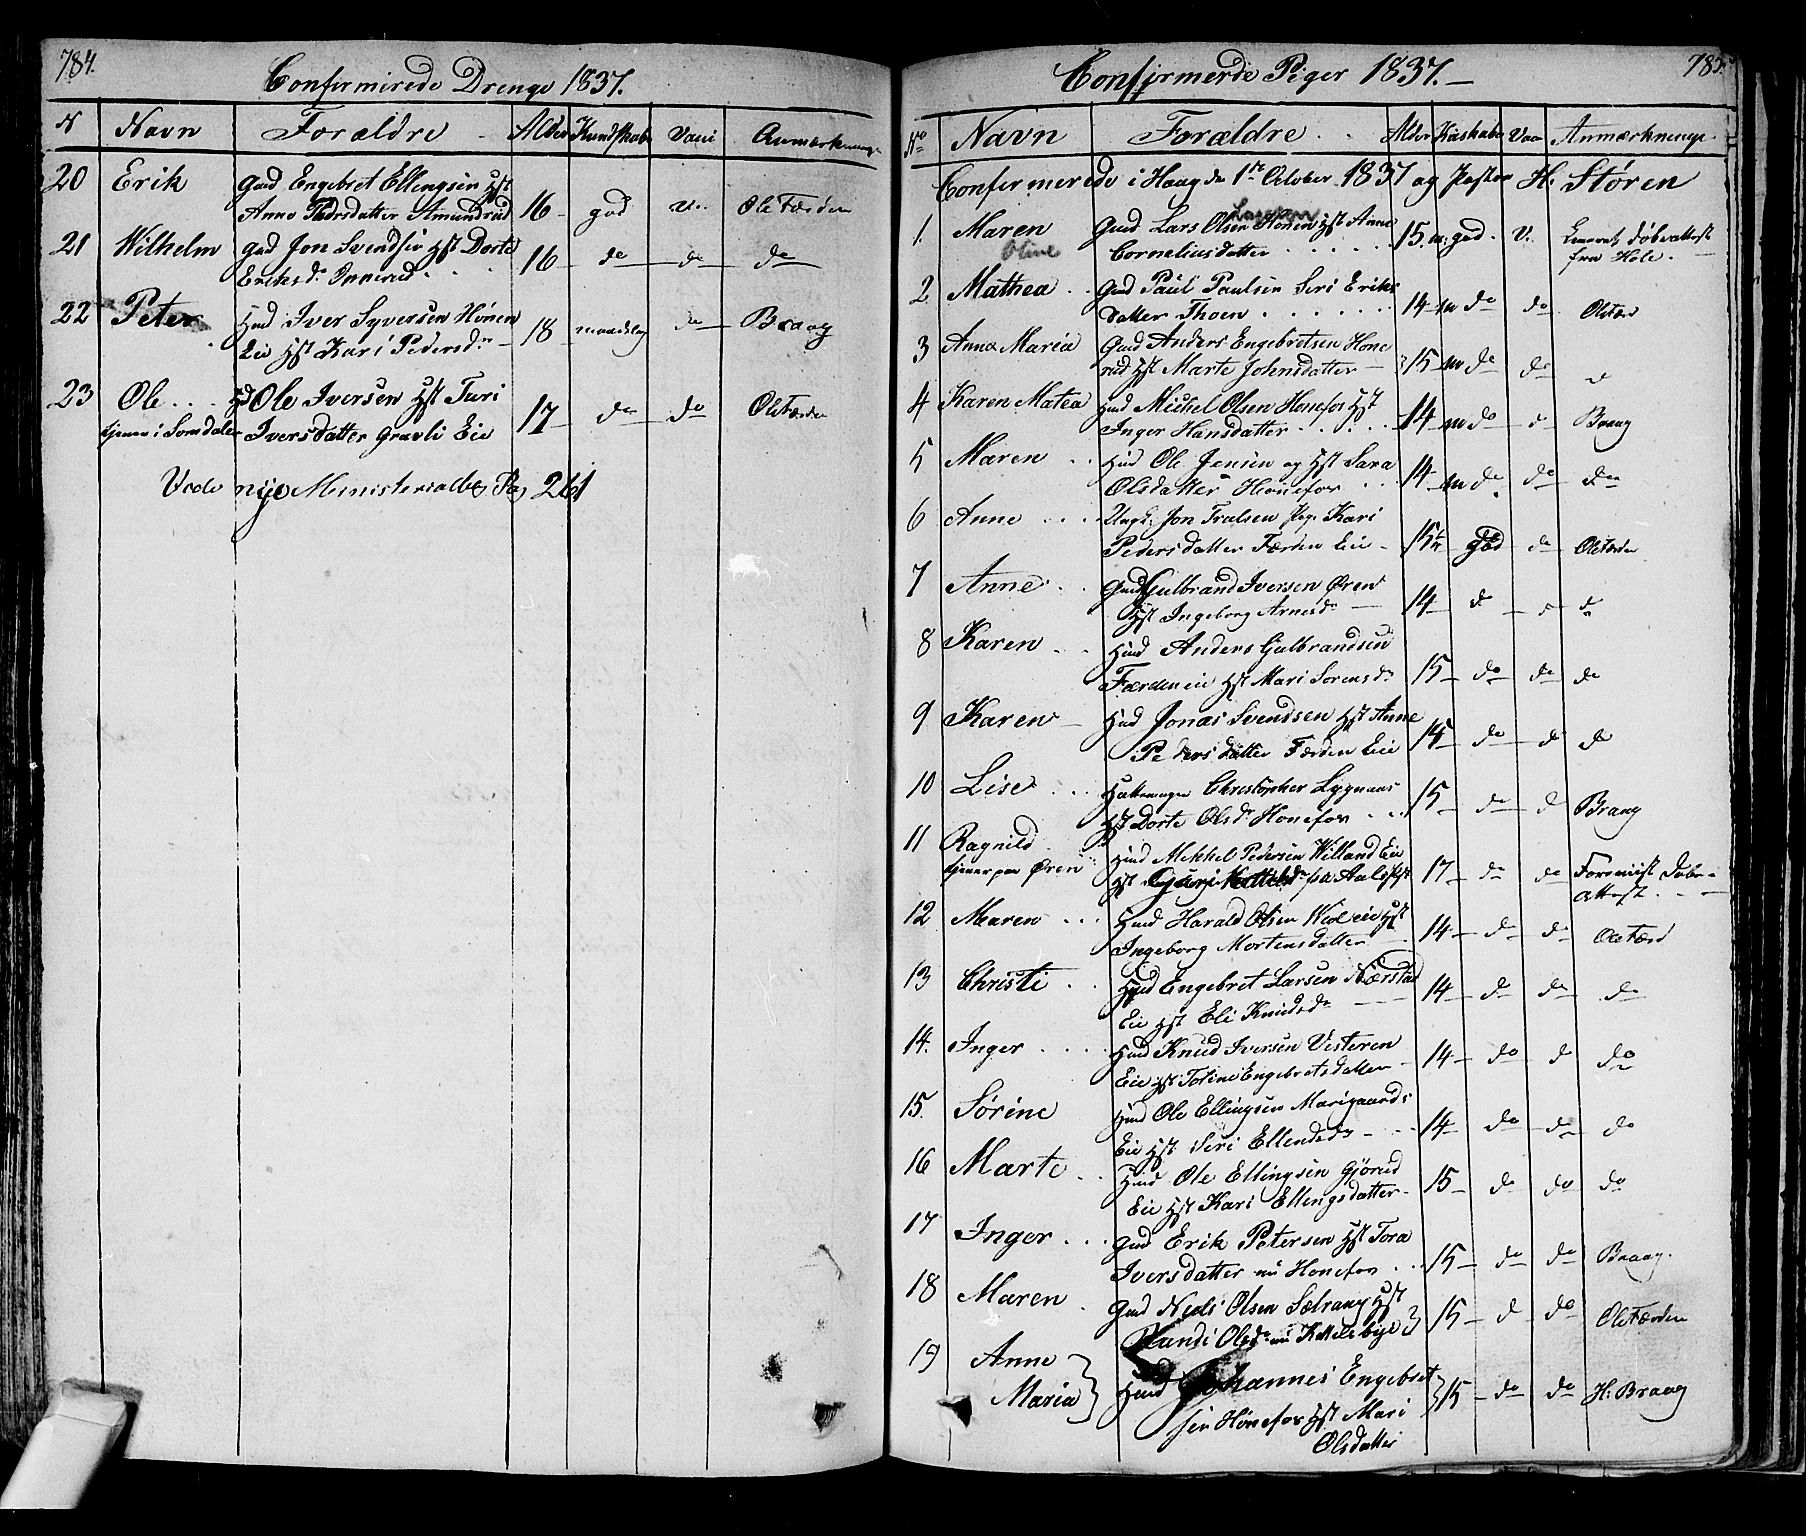 784.
Confirmirede Drenge 1837.
N Navn Forældre Alder Kundskab Vani Anmærkninge
20 Erik Gmd Engebret Ellingsen Hst
Anne Pedersdatter Amundrud 16 god v. Ole Færden
21 Wilhelm Gmd Jon Svendsen Hst Dorte
Eriksd. 16 do do do
22 Peter Hmd Iver Syversen Hönen
Eie Hst Kari Pedersdr 18 maadelig do Braag
23 Ole Hd Ole Iversen Hst Turi
tjener i Somdalen Iversdatter Gravli Eie 17 do do Ole Færden
Vide nye Ministerialbog Pag 261
785.
Confirmerde Piger 1837.
No Navn Forældre Alder Kdskab Van Anmærkninge
Confirmerede i Haug den 1ste October 1837 og Pastor H: Støren
1. Maren Gmd Lars Olsen Hönen Hst Anne
Oline Corneliusdatter 15. m. god. v. Döbeattest
fra Hole.
2 Mathea Gmd Paul Paulsen Seri Eriks
datter Thoen 14 m do do Ole Færd
3 Anna Maria Gmd Anders Engebretsen Hone
rud Hst Marte Johnsdatter 15 m do do d
4 Karen Matea Hmd Michel Olsen Honefos Hst
Inger Hansdatter 14 m do d Braag
5 Maren Hmd Ole Jensen og Hst Sara
Olsdatter Honefos 14 m do do do
6 Anne Ungk. Jon Trulsen Pige Kari
Pedersdatter Færden Eie 15½ god do Ole Færden
7 Anne Gmd Gulbrand Iversen Øren
Hst Ingeborg Arnesdr 14 d d do
8 Karen Hmd Anders Gulbrandsen
Færden eie Hst Mari Sorensdr 15 do do do
9 Karen Hmd Jonas Svendsen Hst Anne
Pedersdatter Færden Eie 15 do d do
10 Lise Hattemager Christopher Lygnaas
Hst Dorte Olsdr Honefos 15 do d Braag
11 Ragnild Hmd Mekkel Pedersen Willand Eie
tjener paa Øren Hst Guri 17 do do Foreviist Dobe
attest.
12 Maren Hmd Harald Olsen Wiol eie Hst
Ingeborg Mortensdatter 14 do do Ole Færd
13 Christi Hmd Engebret Larsen Nærstad
Eie Hst Eli Knudsdr 14 do do do
14. Inger Hmd Knud Iversen Vesteren
Eie Hst Toline Engebretsdatter 14 do d do
15. Sörine Hmd Ole Ellingsen Marigaards
Eie Hst Seri Ellendsdr 14 do do do
16 Marte Hmd Ole Ellingsen Gjörud
Eie Hst Kari Ellengsdatter 15 do do do
17 Inger Gmd Erik Petersen Hst Tora
Iversdatter nu Honefos 15 do do Braag.
18 Maren Gmd Niels Olsen Sætrang Hst
Randi Olsdr nu Kittelsbye 15 d do Ole Færden
19 Anne
Maria Hmd Johannes Engebret
sen Hönefos Hst Mari
Olsdatter 15 do do H: Braag